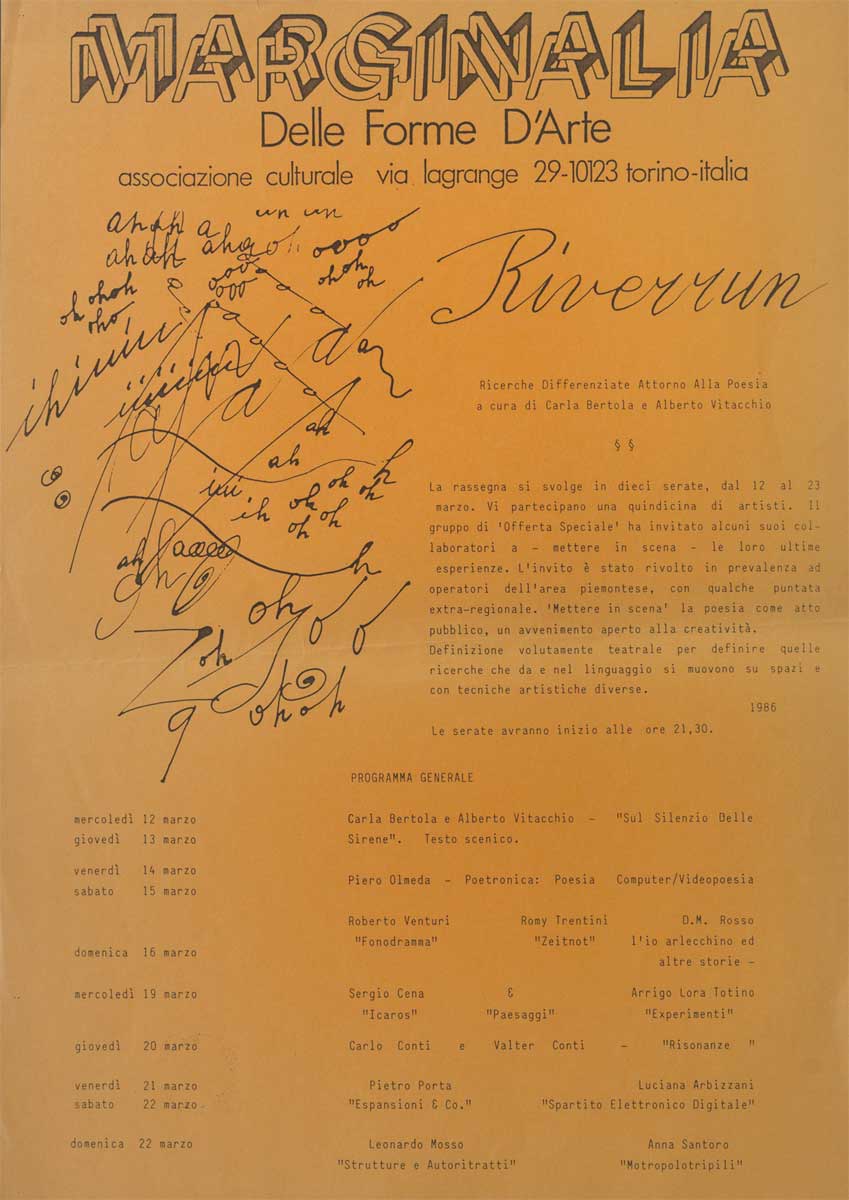 MARGINALIA
Delle Forme D'Arte
associazione culturale via lagrange 29-10123 torino-italia
un un
ah ah a
ahah ahao oooo
oh ohoh ooo oh oh
oh oho ooo oh
ihiiiiii
iiiiiiii
a a a a
ah
ah h
iiii oh oh
ih oh oh
oh oh
ah haaaaa h
gh
oh
oh
oh
q ohoh
Riverrun
Ricerche Differenziate Attorno Alla Poesia
a cura di Carla Bertola e Alberto Vitacchio
§ §
La rassegna si svolge in dieci serate, dal 12 al 23
marzo. Vi partecipano una quindicina di artisti. Il
gruppo di 'Offerta Speciale' ha invitato alcuni suoi col-
laboratori a – mettere in scena – le loro ultime
esperienze. L'invito è stato rivolto in prevalenza ad
operatori dell'area piemontese, con qualche puntata
extra-regionale. 'Mettere in scena' la poesia come atto
pubblico, un avvenimento aperto alla creatività.
Definizione volutamente teatrale per definire quelle
ricerche che da e nel linguaggio si muovono su spazi e
con tecniche artistiche diverse.
1986
Le serate avranno inizio alle ore 21,30.
PROGRAMMA GENERALE
mercoledì 12 marzo Carla Bertola e Alberto Vitacchio – "Sul Silenzio Delle
giovedì 13 marzo Sirene". Testo scenico.
venerdì 14 marzo
Piero Olmeda – Poetronica: Poesia Computer/Videopoesia
sabato 15 marzo
Roberto Venturi Romy Trentini D.M. Rosso
"Fonodramma" "Zeitnot" l'io arlecchino ed
domenica 16 marzo
altre storie –
mercoledì 19 marzo Sergio Cena & Arrigo Lora Totino
"Icaros" "Paesaggi" "Experimenti"
giovedì 20 marzo Carlo Conti e Valter Conti – "Risonanze "
venerdì 21 marzo Pietro Porta Luciana Arbizzani
sabato 22 marzo "Espansioni & Co." "Spartito Elettronico Digitale"
domenica 22 marzo Leonardo Mosso Anna Santoro
"Strutture e Autoritratti" "Motropolotripili"